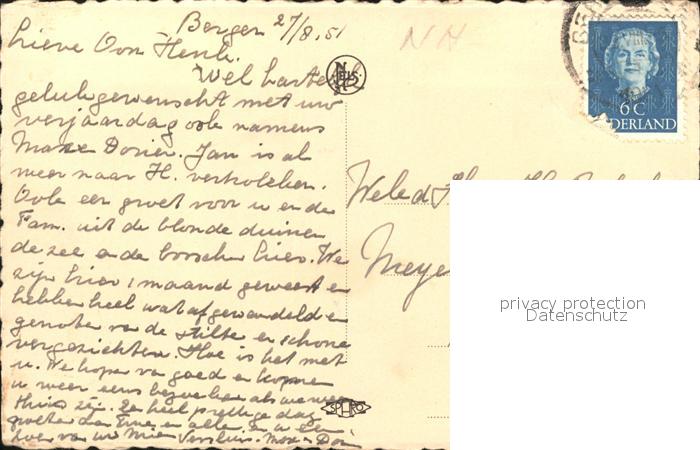 Bergen 27/8.51
Lieve Oom Henk.
Wel hartelijk
gelukgewenscht met uw
verjaardag ook namens
Max Dorier. Jan is al
weer naar H. vertrokken.
Ook een groet voor u en de
Fam. uit de blonde duinen
de zee en de bosschen hier. We
zijn hier 1 maand geweest en
hebben heel wat afgewandeld en
genoten van de stilte en schoone
vergezichten. Hoe is het met
u. We hopen van goed en komen
u weer eens bezoeken als we weer
thuis zijn. Een heel prettige dag
groeten aan en allen en u een
van uw Mien Versluis. Max + Dor
NH
JosPé
SPARO
6 C
NEDERLAND
WelEd
Meye
privacy protection
Datenschutz